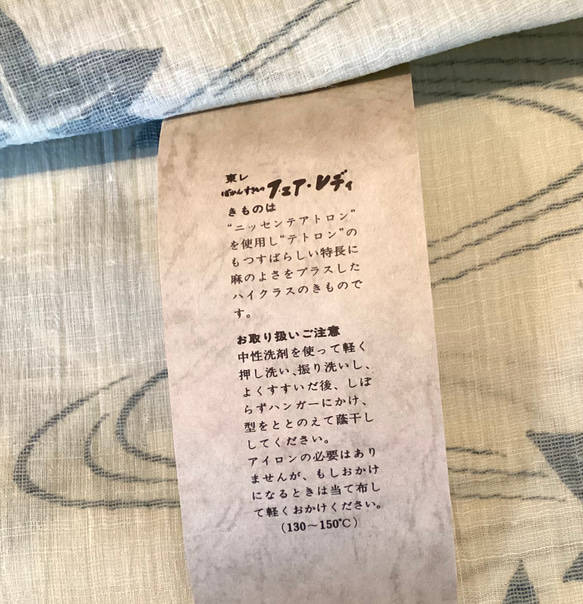 東レ
フェア・レディ
きものは
"ニッセンテアトロン"
を使用し"テトロン"の
もつすばらしい特長に
麻のよさをプラスした
ハイクラスのきもので
す。
お取り扱いご注意
中性洗剤を使って軽く
押し洗い、振り洗いし、
よくすすいだ後、しぼ
らずハンガーにかけ、
型をととのえて蔭干し
してください。
アイロンの必要はあり
ませんが、もしおかけ
になるときは当て布し
て軽くおかけください。
(130〜150℃)